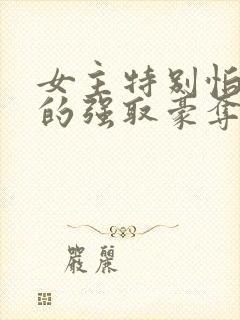 女主特别怕
的强取豪夺
严丽